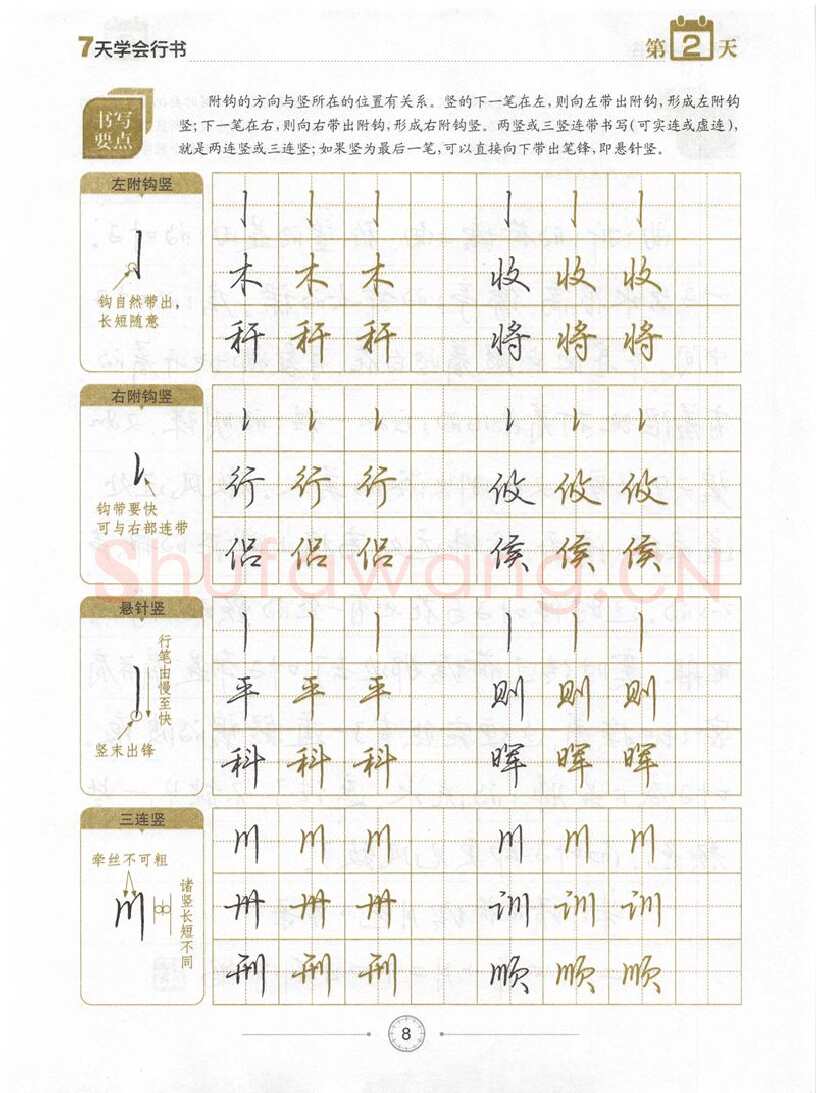 7天学会行书
第2天
书写
要点
附钩的方向与竖所在的位置有关系。竖的下一笔在左,则向左带出附钩,形成左附钩
竖;下一笔在右,则向右带出附钩,形成右附钩竖。两竖或三竖连带书写(可实连或虚连),
就是两连竖或三连竖;如果竖为最后一笔,可以直接向下带出笔锋,即悬针竖。
左附钩竖
钩自然带出,
长短随意
木 木 木 收 收 收
秆 秆 秆 将 将 将
右附钩竖
钩带要快
可与右部连带
行 行 行 攸 攸 攸
侣 侣 侣 侯 侯 侯
Shufawang.CN
悬针竖
行笔由慢至快
竖末出锋
平 平 平 则 则 则
科 科 科 晖 晖 晖
三连竖
牵丝不可粗
诸竖长短不同
川 川 川 川 川 川
卅 卅 卅 训 训 训
刑 刑 刑 顺 顺 顺
8